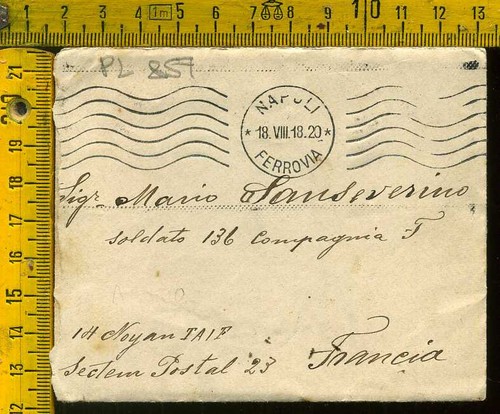 PL 859
NAPOLI
* 18.VIII.18.20 *
FERROVIA
Sigr Mario Sanseverino
soldato 136 Compagnia T
14 Noyan TAIF
Secteur Postal 23
Francia
1 2 3 4 1m 5 6 7 8 9 10 11 12 13
21
20
19
18
17
16
15
14
13
12